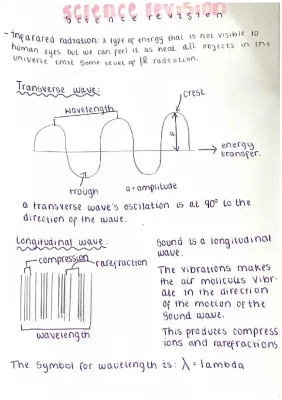 science revision
science revision
- infrarared radiation: a type of energy that is not visible to
human eyes but we can feel it as heat. all objects in the
universe emit some level of IR radiation.
Transverse wave:
wavelength
crest
a
energy
transfer.
trough
a = amplitude
a transverse wave's oscilation is at 90° to the
direction of the wave.
Longitudinal wave:
compression
rarefraction
wavelength
Sound is a longitudinal
wave.
The vibrations makes
the air molicules vibr-
ate in the direction
of the motion of the
sound wave.
This produces compress
ions and rarefractions.
The symbol for wavelength is: λ = lambda